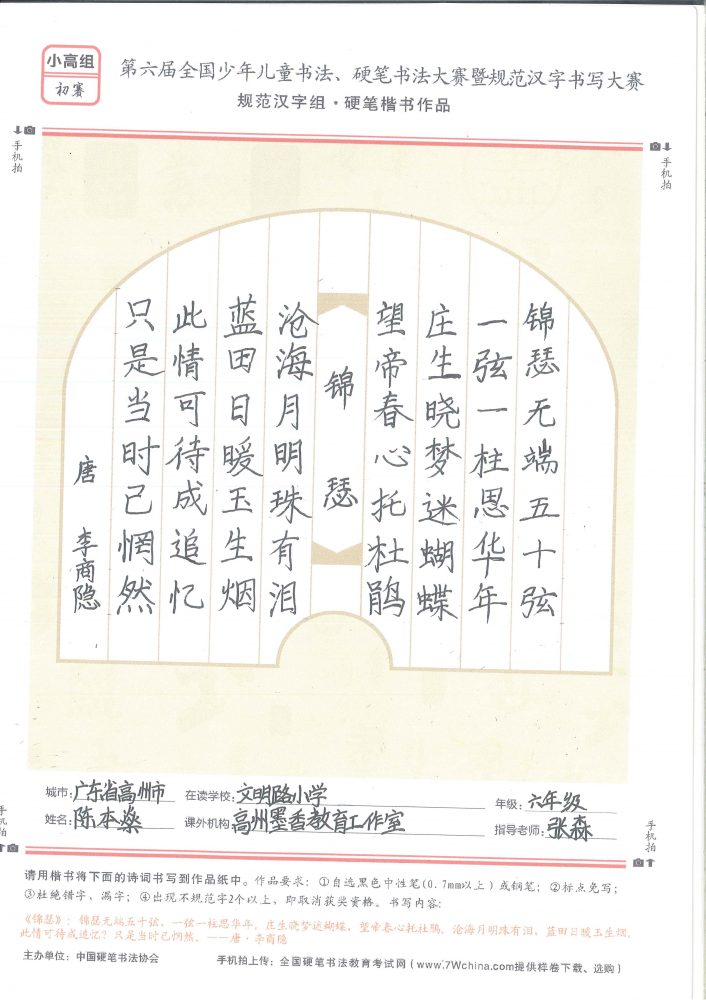 小高组
初赛
第六届全国少年儿童书法、硬笔书法大赛暨规范汉字书写大赛
规范汉字组·硬笔楷书作品
手机拍
手机拍
锦瑟无端五十弦
一弦一柱思华年
庄生晓梦迷蝴蝶
望帝春心托杜鹃
锦瑟
沧海月明珠有泪
蓝田日暖玉生烟
此情可待成追忆
只是当时已惘然
唐 李商隐
城市:广东省高州市 在读学校:文明路小学 年级:六年级
姓名:陈本燊 课外机构:高州墨香教育工作室 指导老师:张森
手机拍
手机拍
请用楷书将下面的诗词书写到作品纸中。作品要求:①自选黑色中性笔(0.7mm以上)或钢笔;②标点免写;
③杜绝错字、漏字;④出现不规范字2个以上,即取消获奖资格。书写内容:
《锦瑟》:锦瑟无端五十弦,一弦一柱思华年。庄生晓梦迷蝴蝶,望帝春心托杜鹃。沧海月明珠有泪,蓝田日暖玉生烟。
此情可待成追忆?只是当时已惘然。——唐·李商隐
主办单位:中国硬笔书法协会 手机拍上传:全国硬笔书法教育考试网(www.7Wchina.com提供样卷下载、选购)